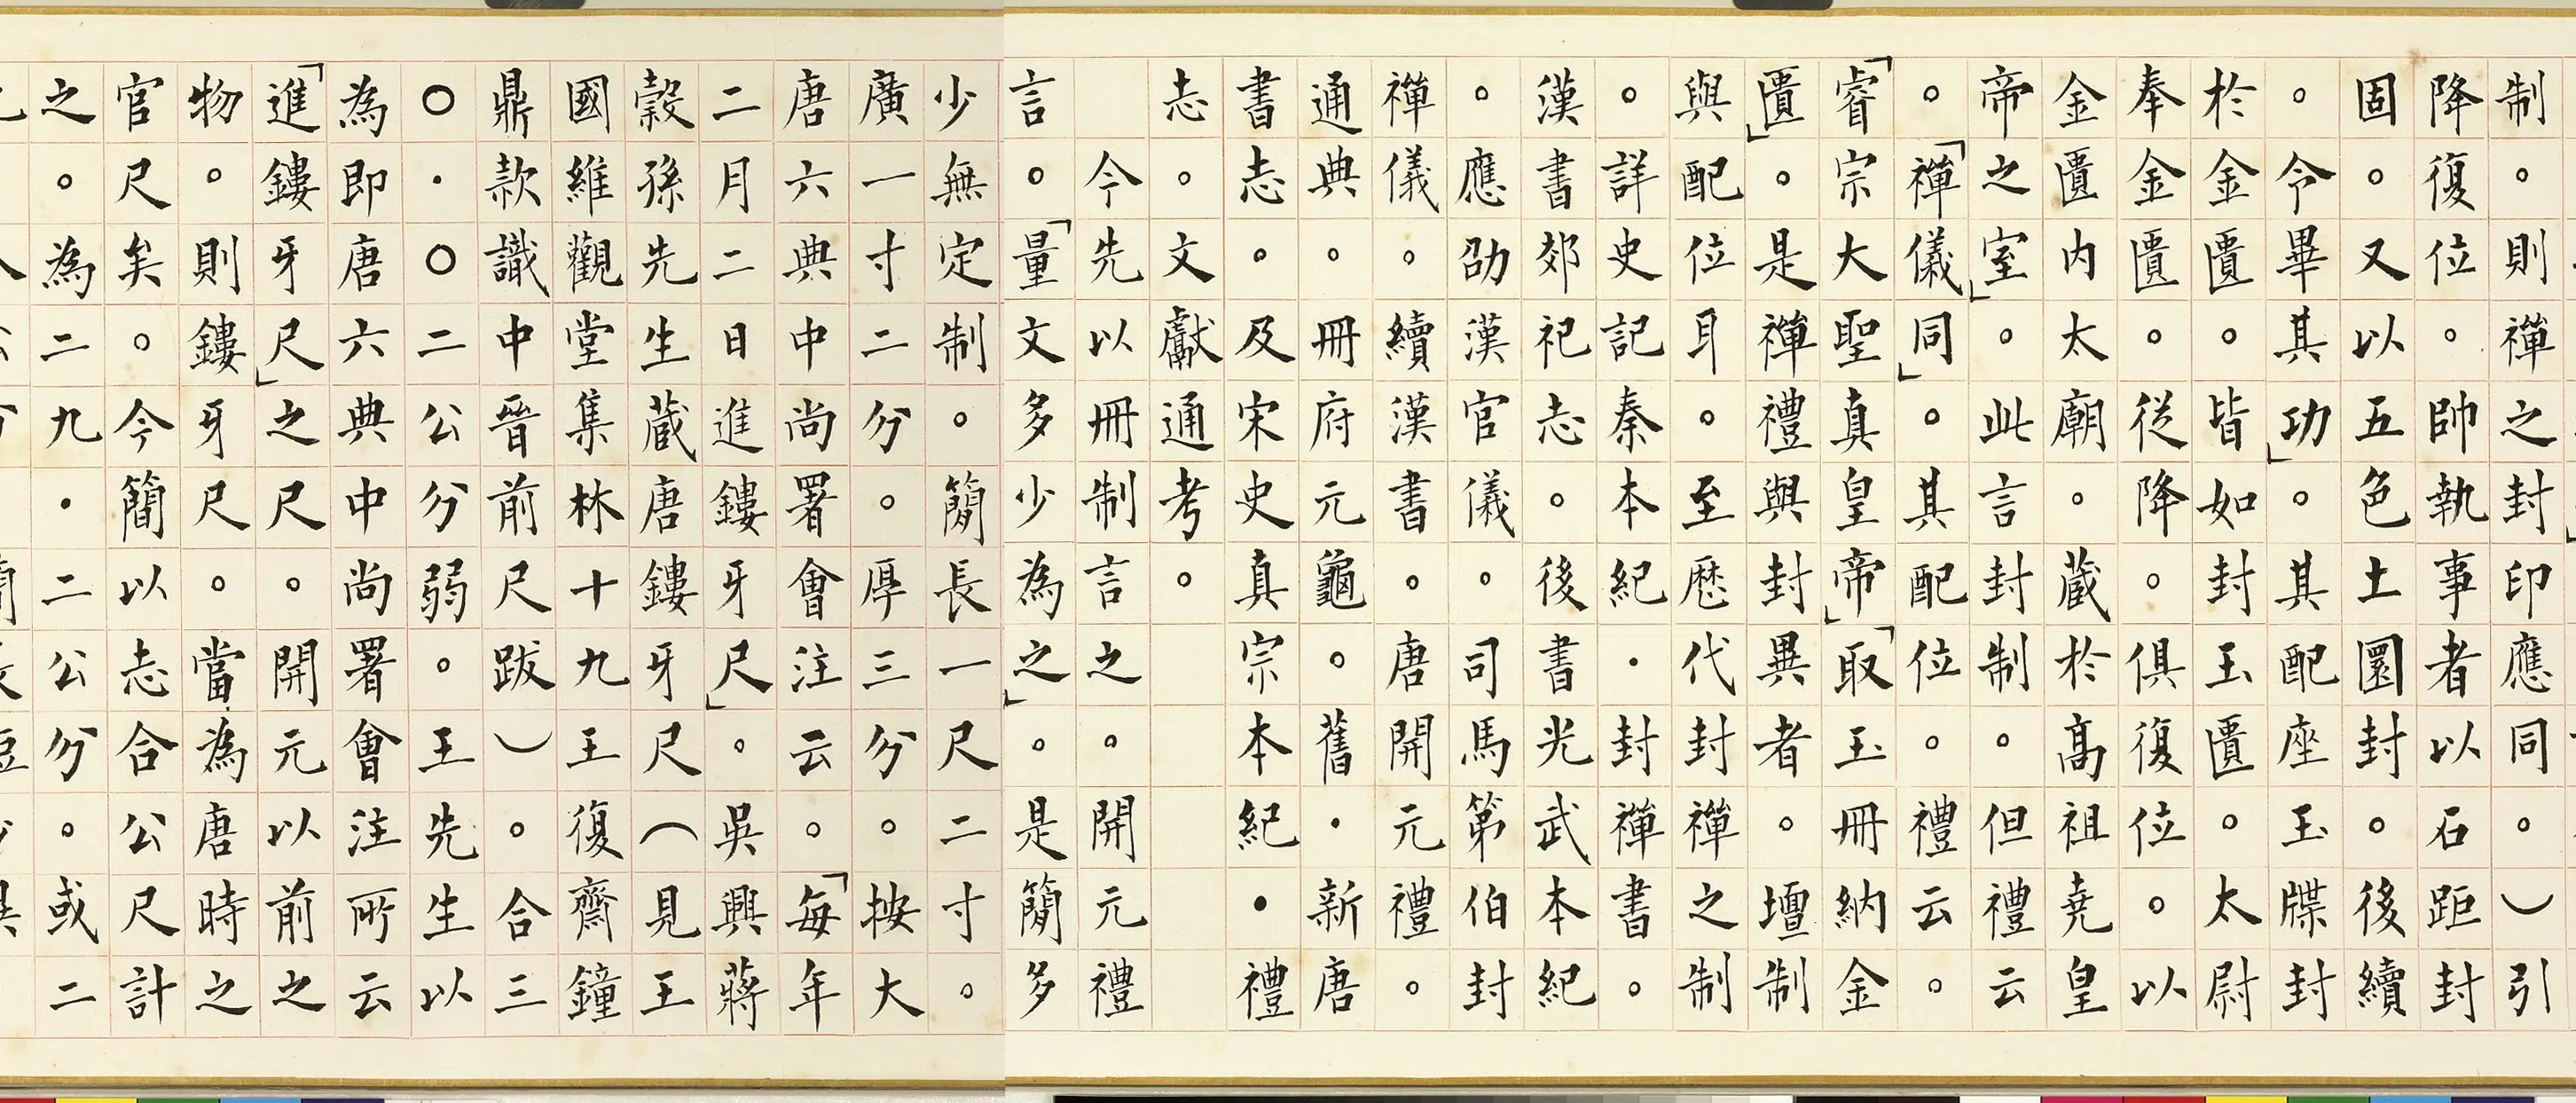 制。則禪之封印應同。）引
降復位。帥執事者以石距封
固。又以五色土圜封。後續
。令畢其功」。其配座玉牒封
於金匱。皆如封玉匱。太尉
奉金匱。從降。俱復位。以
金匱內太廟。藏於高祖堯皇
帝之室」。此言封制。但禮云
。「禪儀同」。其配位。禮云。
「睿宗大聖真皇帝」「取玉冊納金
匱」。是禪禮與封異者。壇制
與配位耳。至歷代封禪之制
。詳史記秦本紀・封禪書。
漢書郊祀志。後書光武本紀
。應劭漢官儀。司馬第伯封
禪儀。續漢書。唐開元禮。
通典。冊府元龜。舊・新唐
書志。及宋史真宗本紀・禮
志。文獻通考。
今先以冊制言之。開元禮
言。「量文多少為之」。是簡多
少無定制。簡長一尺二寸。
廣一寸二分。厚三分。按大
唐六典中尚署會注云。「每年
二月二日進鏤牙尺」。吳興蔣
穀孫先生藏唐鏤牙尺（見王
國維觀堂集林十九王復齋鐘
鼎款識中晉前尺跋）。合三
〇・〇二公分弱。王先生以
為即唐六典中尚署會注所云
「進鏤牙尺」之尺。開元以前之
物。則鏤牙尺。當為唐時之
官尺矣。今簡以志合公尺計
之。為二九・二公分。或二